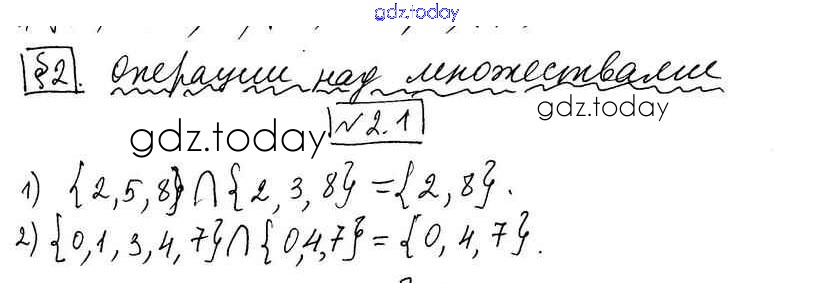 gdz.today
§2. Операции над множествами
gdz.today
gdz.today
№2.1
1) {2,5,8}∩{2,3,8}={2,8}.
2) {0,1,3,4,7}∩{0,4,7}={0,4,7}.